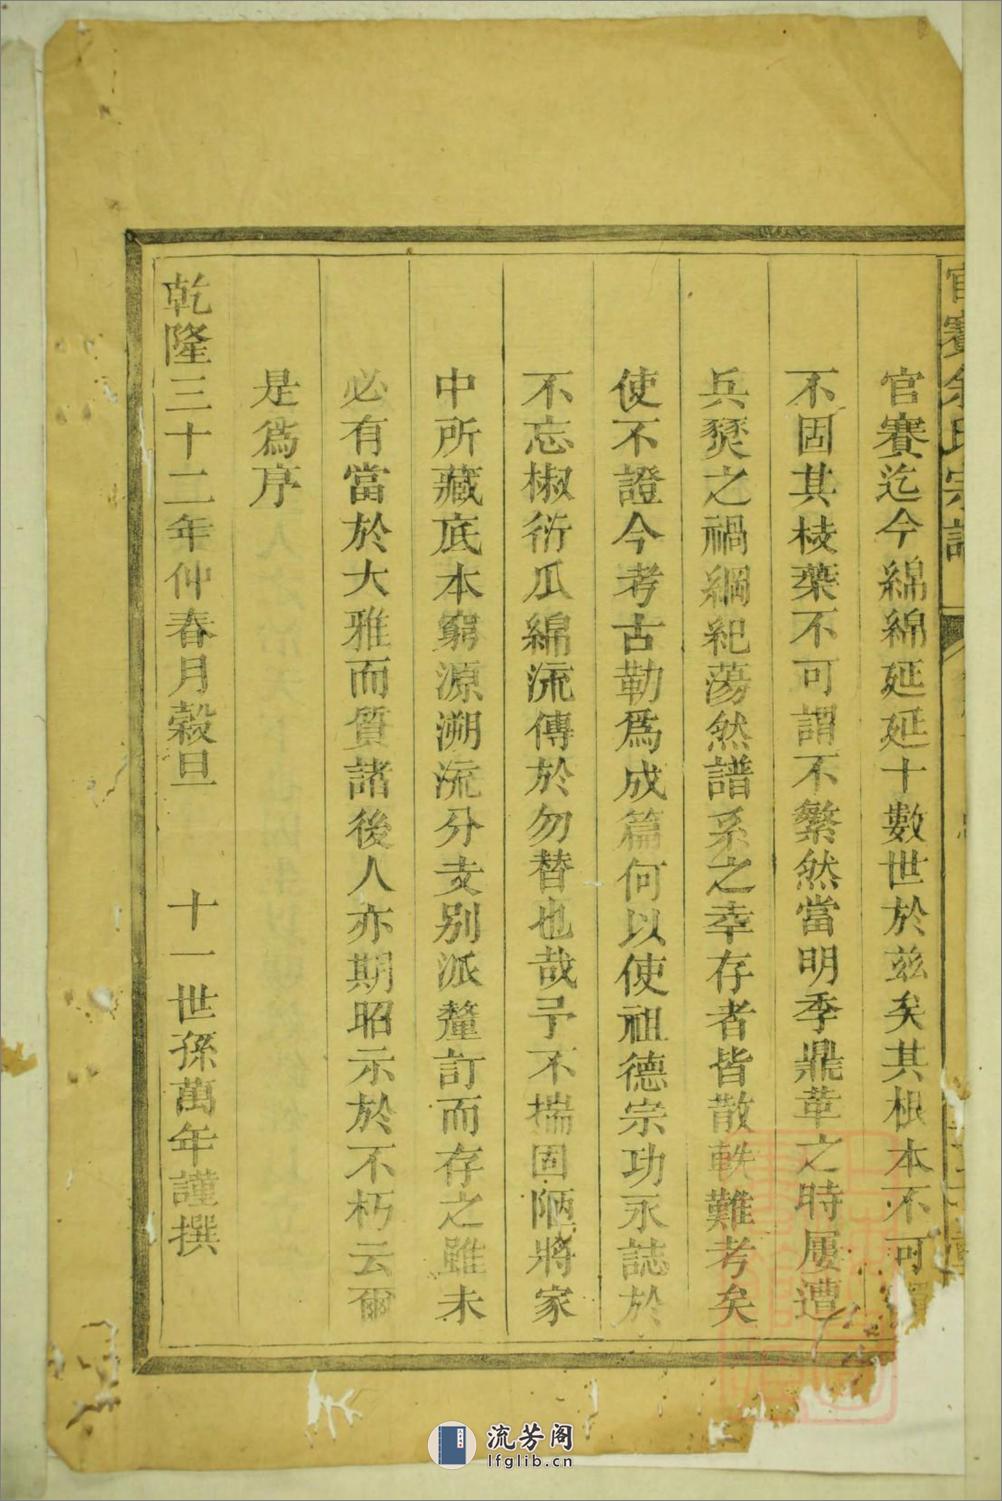 官賽余氏宗譜
官賽迄今綿綿延延十數世於兹矣其根本不可謂
不固其枝葉不可謂不繁然當明季鼎革之時屢遭
兵燹之禍綱紀蕩然譜系之幸存者皆散軼難考矣
使不證今考古勒爲成篇何以使祖德宗功永誌於
不忘椒衍瓜綿流傳於勿替也哉予不揣固陋將家
中所藏底本窮源溯流分支别派釐訂而存之雖未
必有當於大雅而質諸後人亦期昭示於不朽云爾
是爲序
乾隆三十二年仲春月穀旦 十一世孫萬年謹撰
流芳阁
lfglib.cn